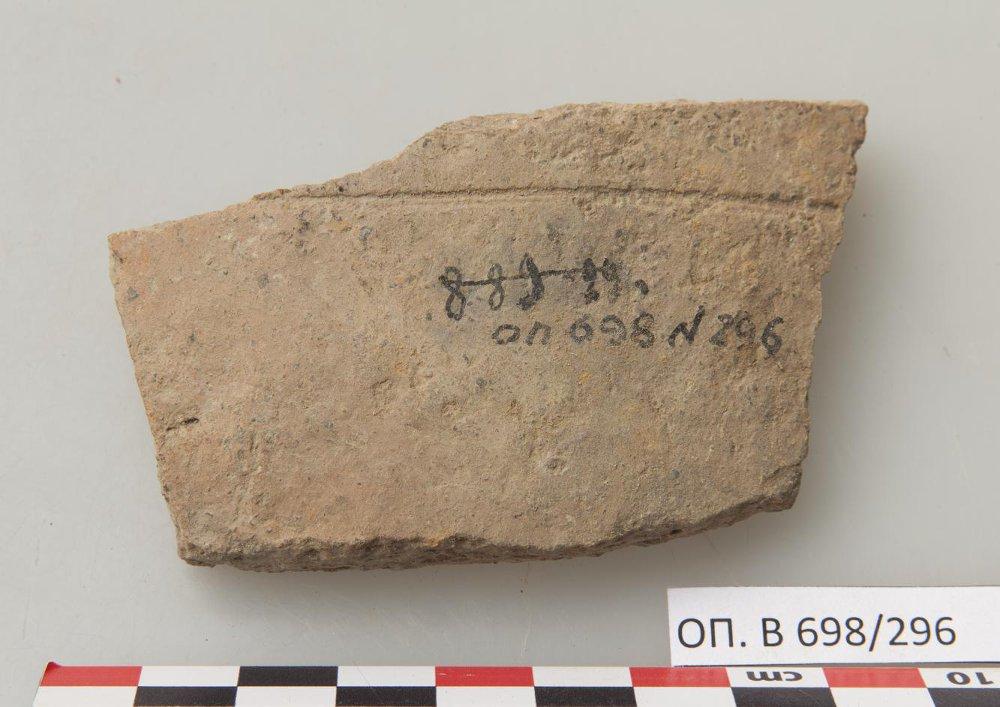 ОП 698 N 296
ОП. В 698/296
cm
10